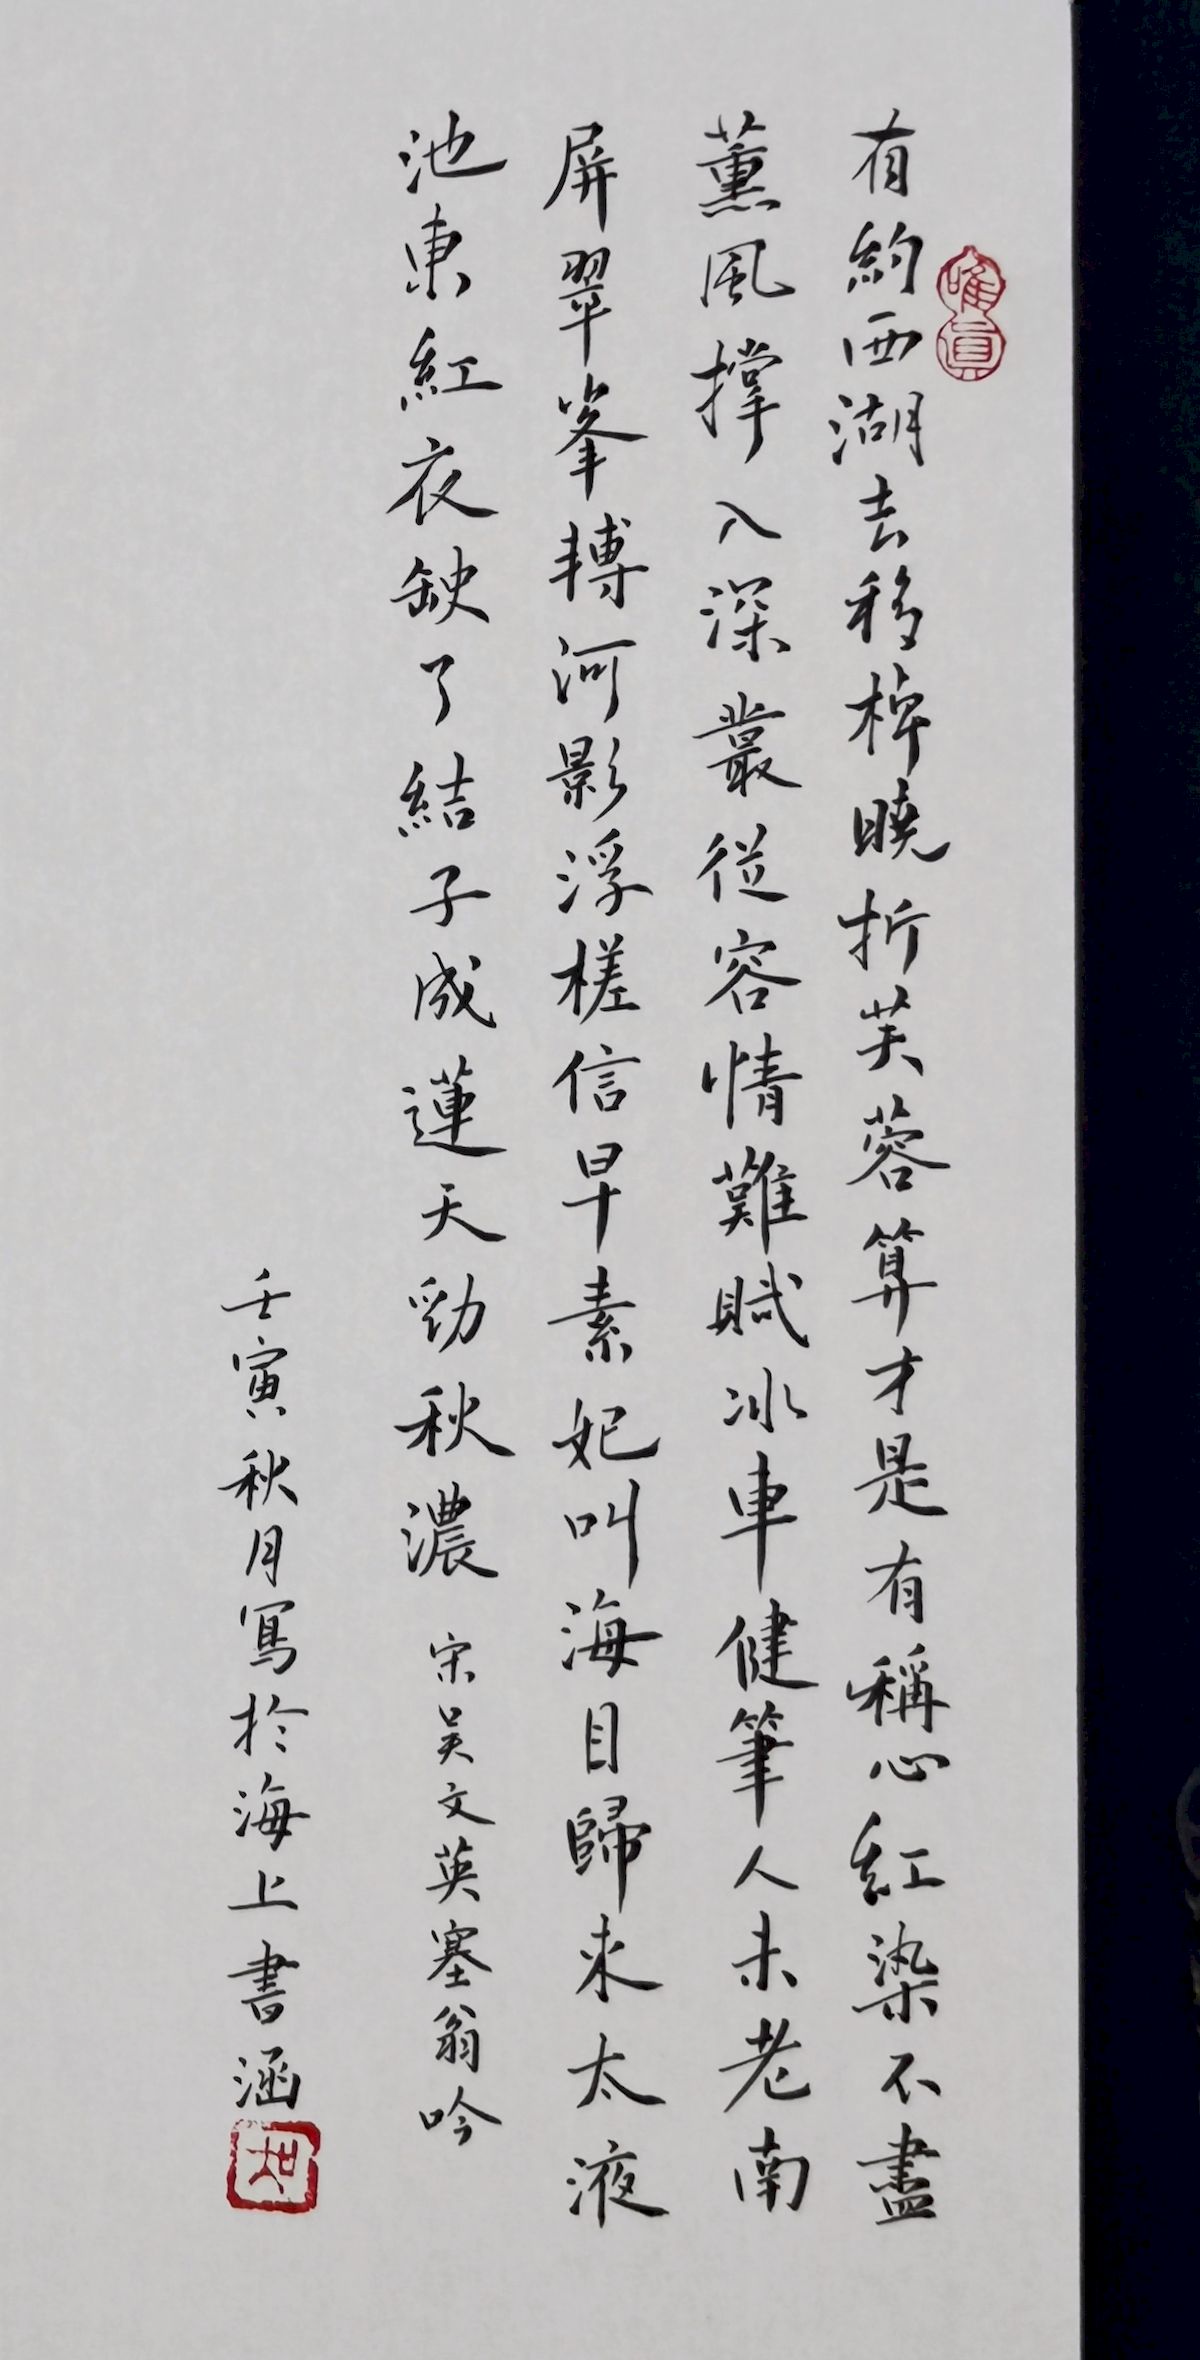 有約西湖去移棹曉折芙蓉算才是有稱心紅染不盡
薰風撑入深叢從容情難賦冰車健筆人未老南
屏翠峯轉河影浮槎信早素妃叫海目歸來太液
池東紅衣缺了結子成蓮天勁秋濃
宋吴文英塞翁吟
壬寅秋月寫於海上書涵
唯真